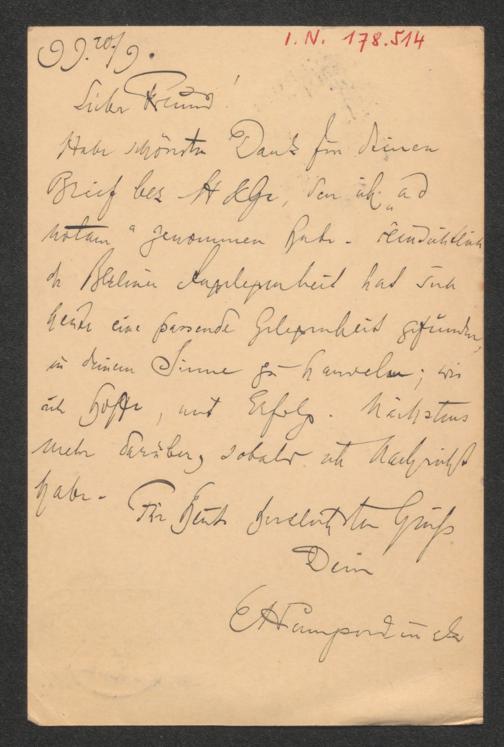 I. N. 178.514
99. 20/9.
Lieber Freund!
Habe schönsten Dank für deinen
Brief bez. H & Gr, den ich „ad
notam“ genommen habe. Hinsichtlich
der Berliner Angelegenheit hat sich
heute eine passende Gelegenheit gefunden,
in deinem Sinne zu handeln; wie
ich hoffe, mit Erfolg. Nächstens
mehr darüber, sobald ich Nachricht
habe.
Für heute herzlichsten Gruß
Dein
EHumperdinck